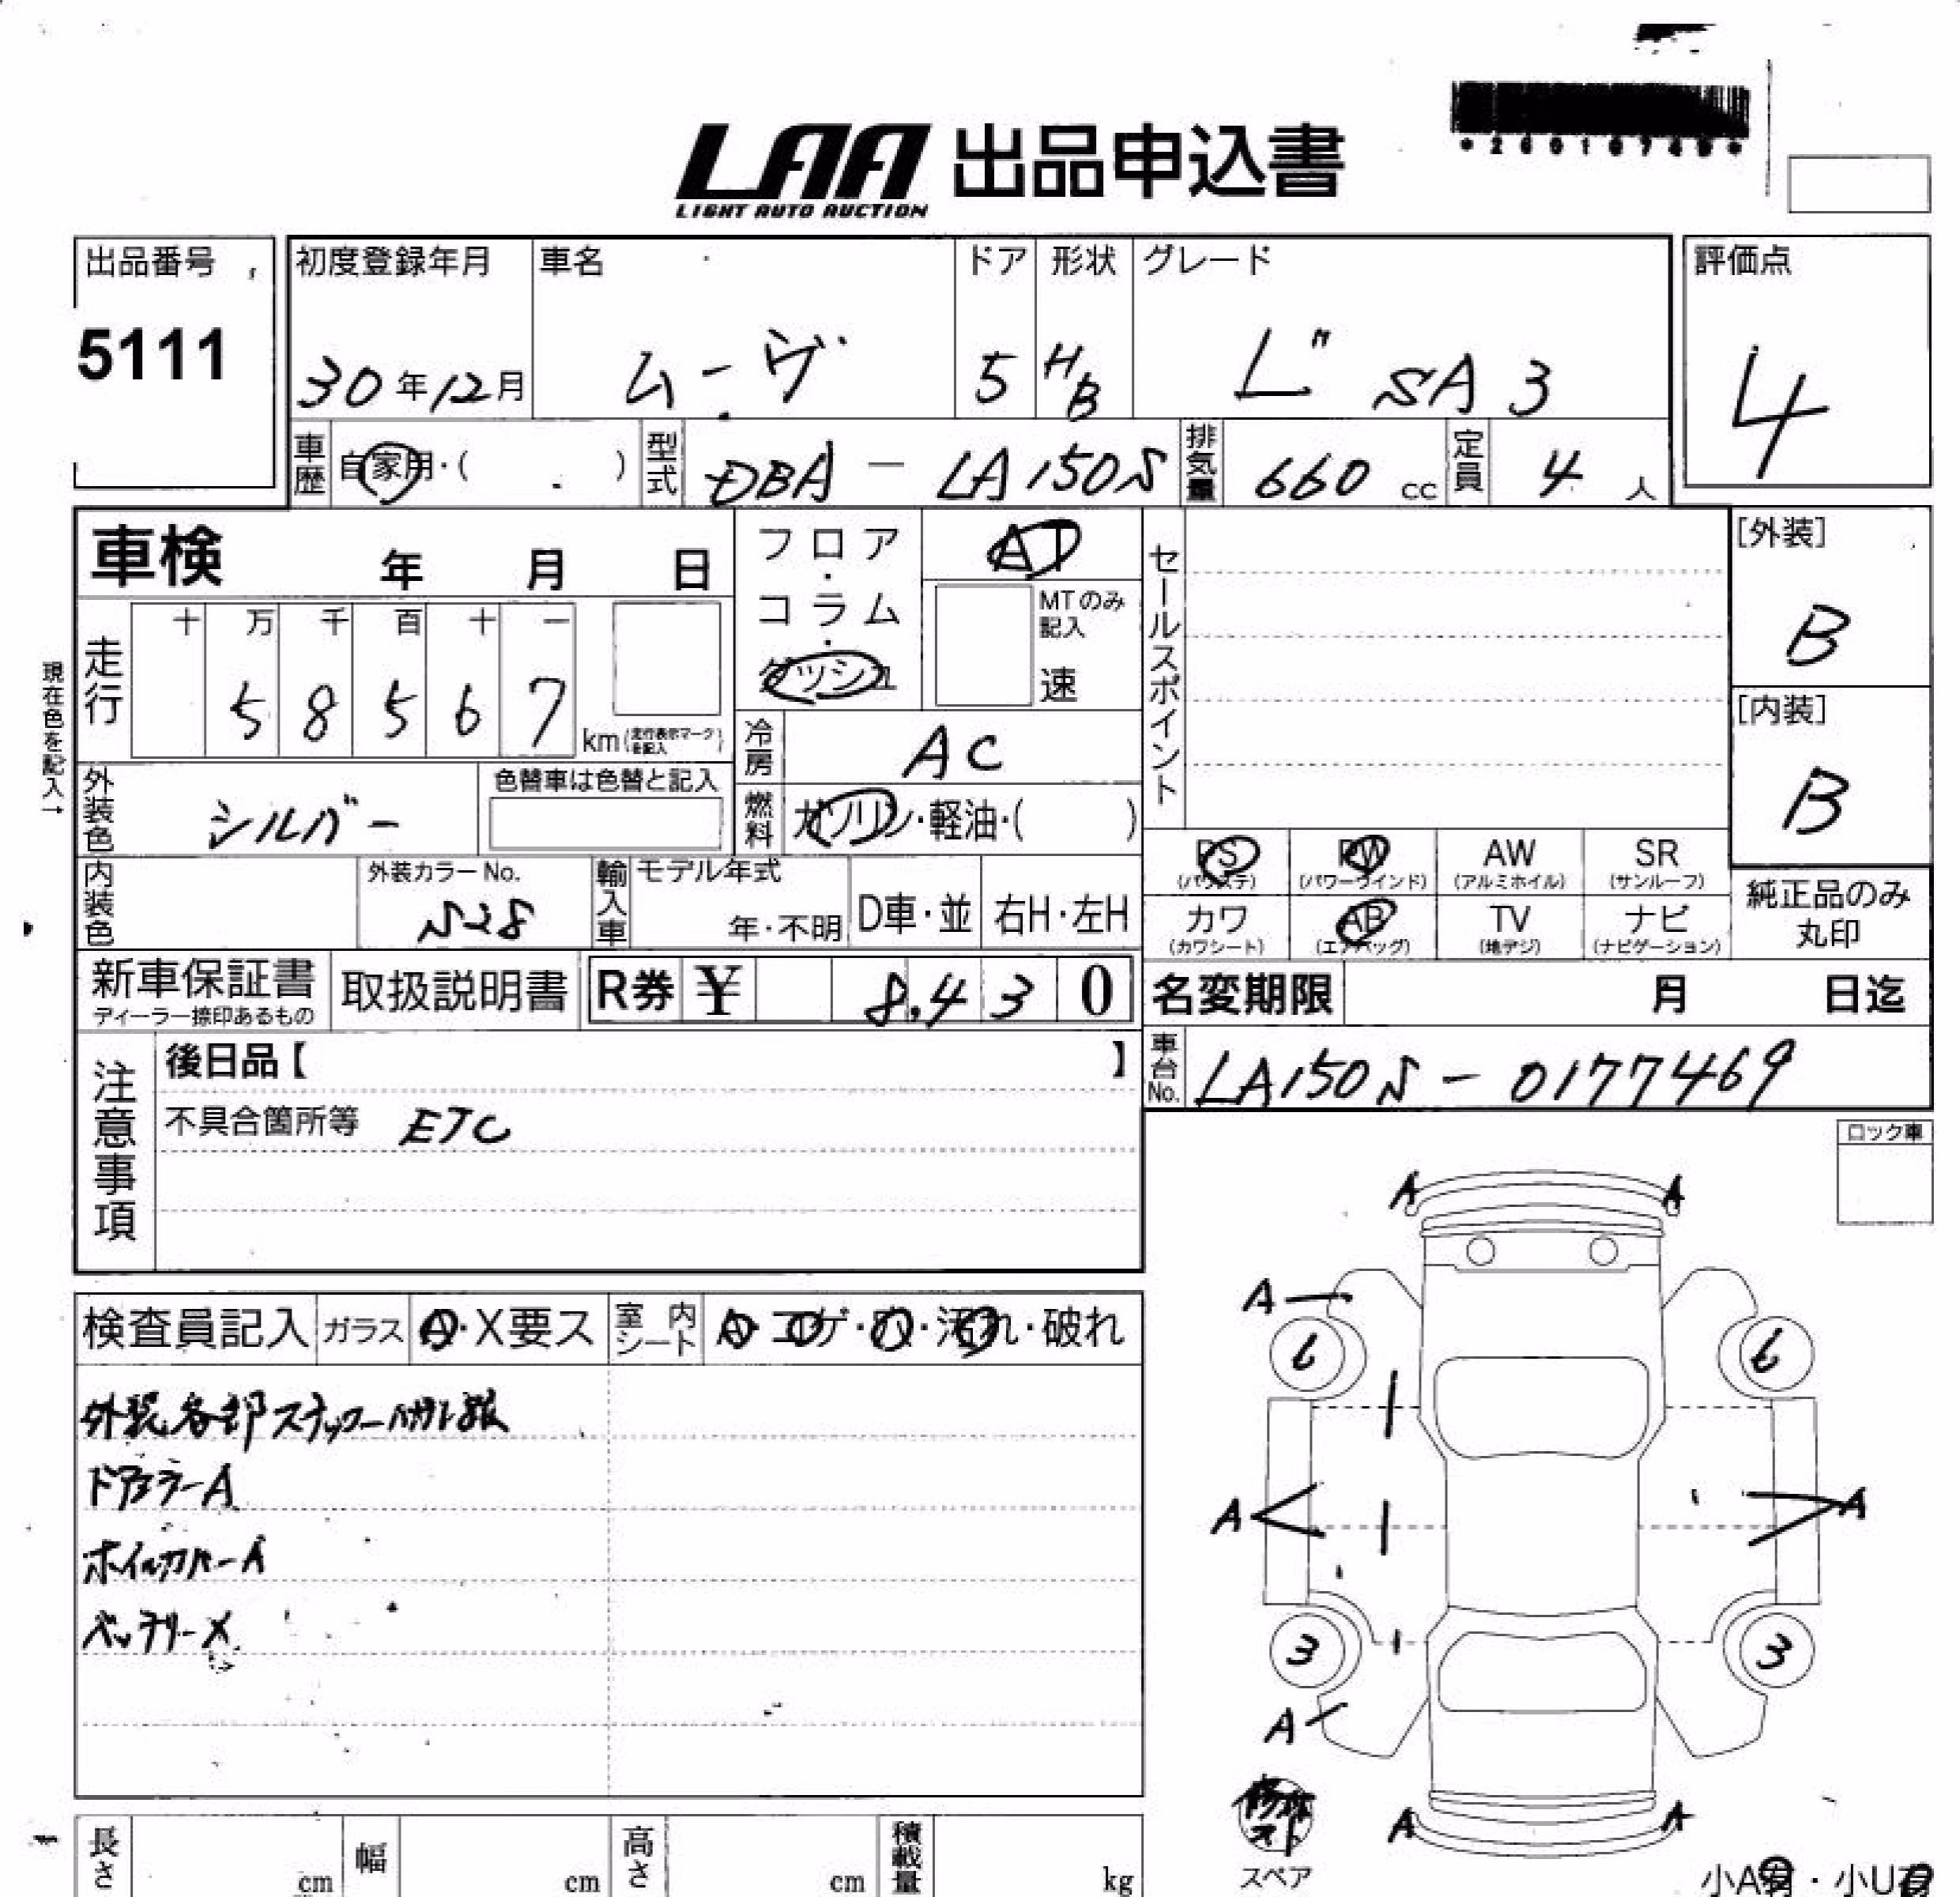 LAA 出品申込書
LIGHT AUTO AUCTION
出品番号
5111
初度登録年月
30年12月
車名
ムーヴ
ドア
5
形状
HB
グレード
L" SA3
評価点
4
車歴 自家用・( )
型式 DBA-LA150S
排気量 660 cc
定員 4 人
車検 年 月 日
フロア・コラム・ダッシュ
AT
MTのみ記入
速
セールスポイント
[外装]
B
[内装]
B
現在色を記入→
走行 十 万 千 百 十 一
5 8 5 6 7 km(走行表示マークを記入)
冷房 AC
外装色 シルバー
色替車は色替と記入
燃料 ガソリン・軽油・( )
PS (パワステ)
PW (パワーウインド)
AW (アルミホイル)
SR (サンルーフ)
カワ (カワシート)
AB (エアバッグ)
TV (地デジ)
ナビ (ナビゲーション)
純正品のみ
丸印
内装色
外装カラーNo.
S28
輸入車
モデル年式
年・不明
D車・並
右H・左H
新車保証書
ディーラー捺印あるもの
取扱説明書
R券 ¥ 8,430
名変期限 月 日迄
車台No. LA150S-0177469
注意事項
後日品【 】
不具合箇所等 ETC
ロック車
検査員記入 ガラス A・X要ス
室内シート A・コゲ・穴・汚れ・破れ
外装各部ステッカーハガレ跡
ドアミラーA
ホイルカバーA
バッテリーX
A A
A
6 6
A A
3 3
A
A A
スペア
小A有・小U有
長さ cm
幅 cm
高さ cm
積載量 kg